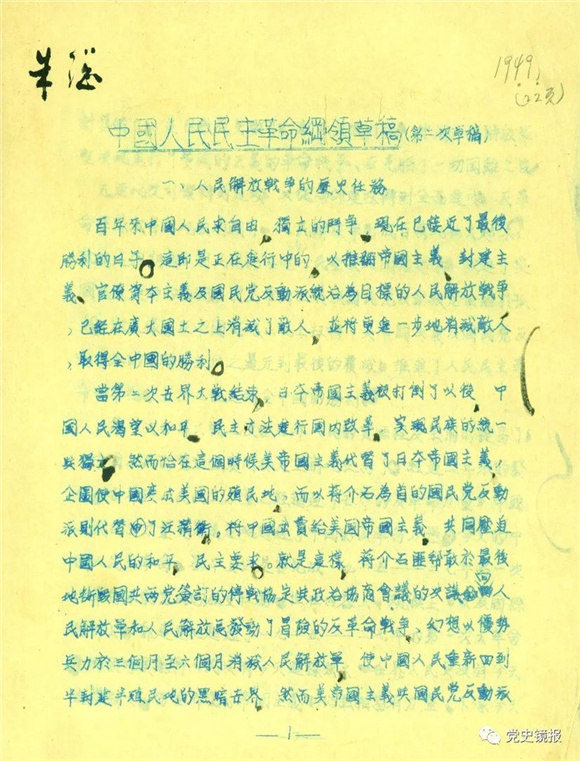 朱 總
1949.
(22頁)
中國人民民主革命綱領草稿(第二次草稿)
一、人民解放戰爭的歷史任務
百年來中國人民求自由、獨立的鬥爭,現在已接近了最後
勝利的日子。這即是正在進行中的,以推翻帝國主義、封建主
義、官僚資本主義及國民党反動派統治為目標的人民解放戰爭
,已經在廣大國土之上消滅了敵人,並將更進一步地消滅敵人
,取得全中國的勝利。
當第二次世界大戰結束,日本帝國主義被打倒了以後,中
國人民渴望以和平、民主方法進行國內改革,實現民族的統一
與獨立。然而恰在這個時候美帝國主義代替了日本帝國主義,
企圖使中國變成美國的殖民地,而以蔣介石為首的國民党反動
派則代替了汪精衛,將中國出賣給美国帝國主義,共同壓迫
中國人民的和平、民主要求。就是這樣,蔣介石匪幫敢於最後
地撕毀國共兩党簽訂的停戰協定與政治協商會議的決議,向人
民解放軍和人民解放區發動了冒險的反革命戰爭,幻想以優勢
兵力於三個月至六個月消滅人民解放軍,使中國人民重新回到
半封建半殖民地的黑暗世界。然而美帝國主義與國民党反動派
— 1 —
党史镜报